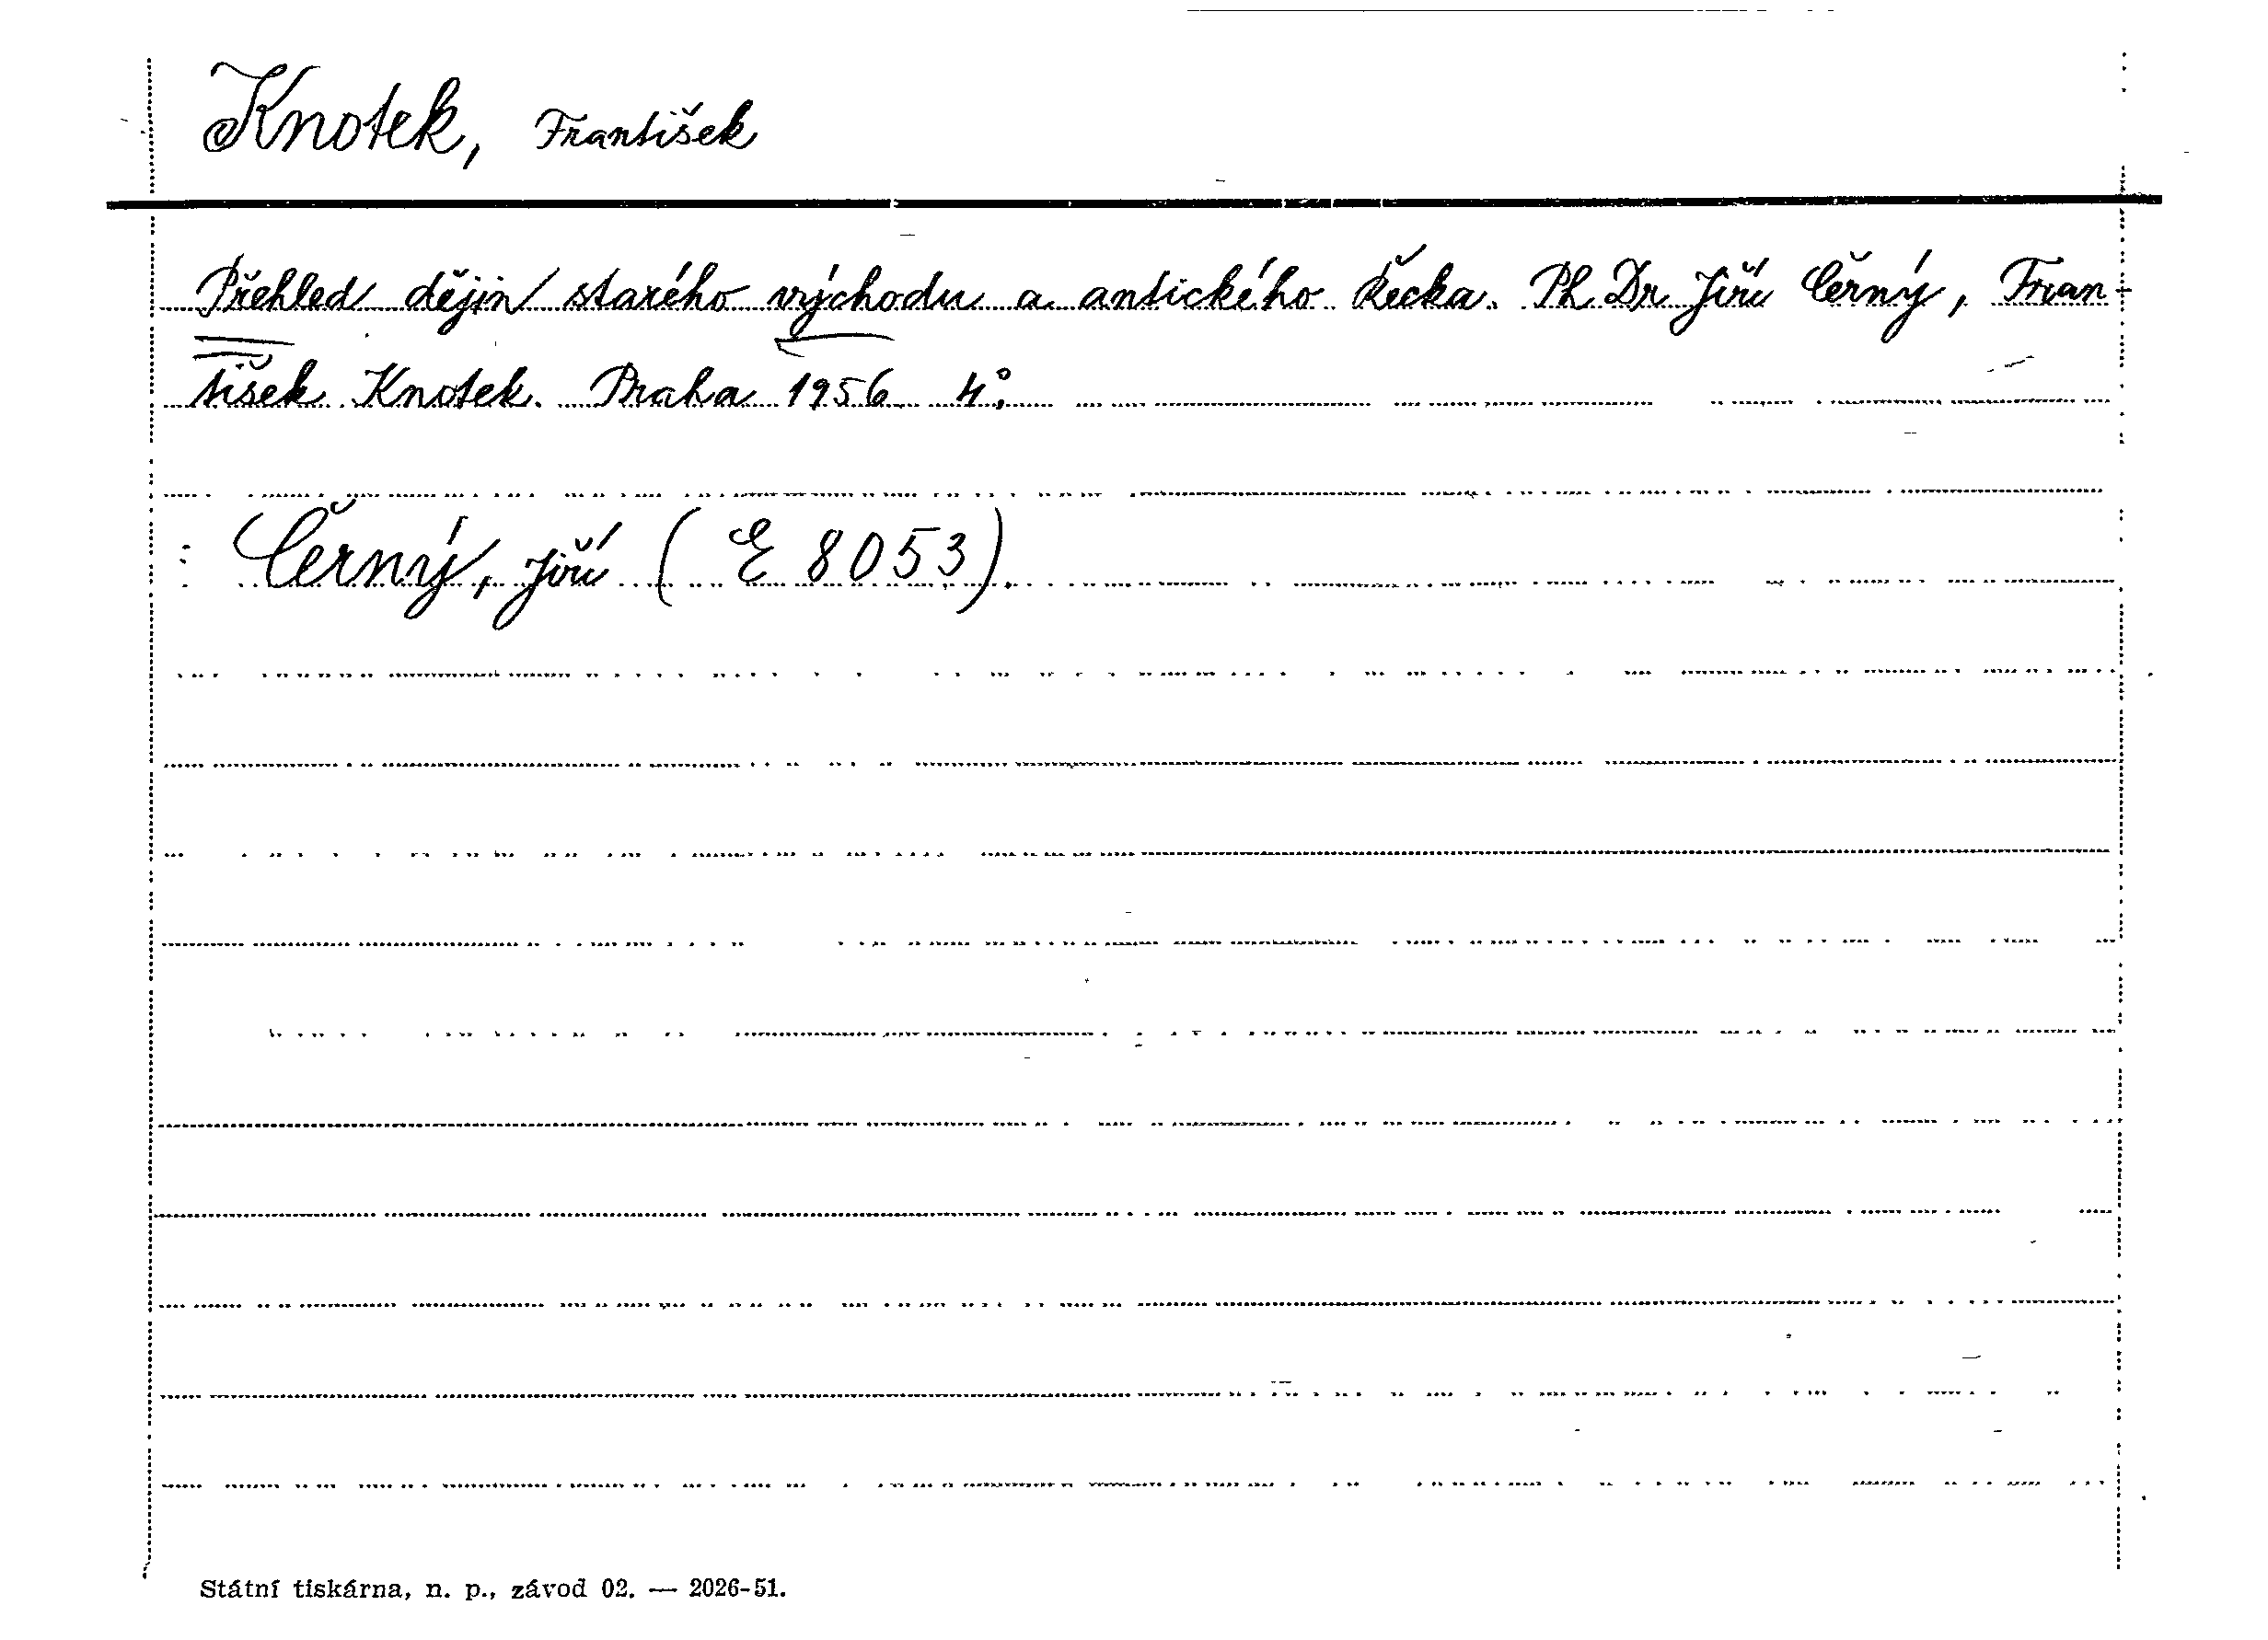 Knotek, František
Přehled dějin starého východu a antického Řecka. Ph Dr Jiří Černý, Fran-
tišek Knotek. Praha 1956 4°.
Černý, Jiří ( E 8053).
Státní tiskárna, n. p., závod 02. — 2026-51.